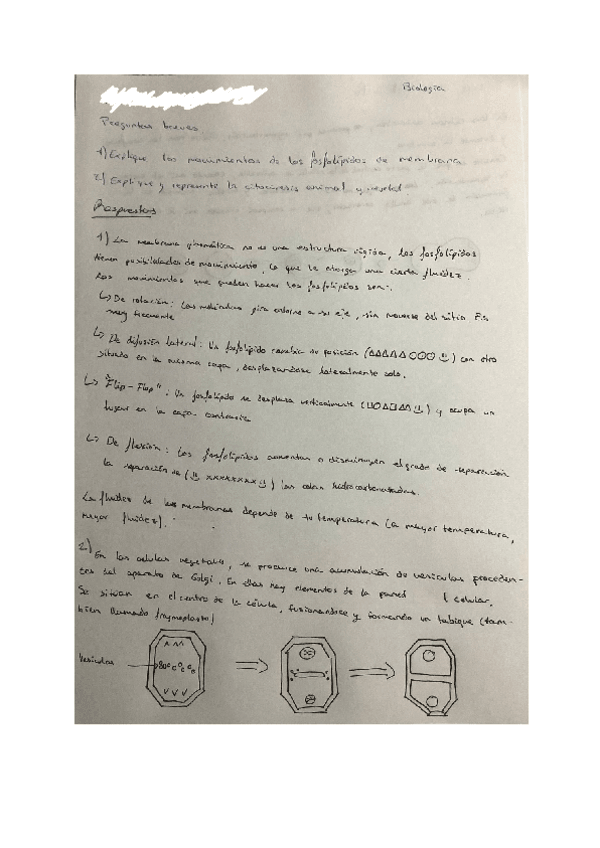 Biologia
Preguntas breves
1) Explique los movimientos de los fosfolípidos de membrana
2) Explique y represente la citocinesis animal y vegetal
Respuestas
1) La membrana plasmática no es una estructura rígida, los fosfolípidos
tienen posibilidades de movimiento, lo que le otorga una cierta fluidez.
Los movimientos que pueden hacer los fosfolípidos son:
↳ De rotación: Las moléculas gira entorno a su eje, sin moverse del sitio. Es
muy frecuente
↳ De difusión lateral: Un fosfolípido cambia su posición (△△△△△○○○☺) con otro
situado en la misma capa, desplazandose lateralmente solo.
↳ "Flip-Flop": Un fosfolípido se desplaza verticalmente ( ) y ocupa un
lugar en la capa contraria
↳ De flexión: Los fosfolípidos aumentan o disminuyen el grado de separación
la separación de (☺ xxxxxxxx☺) las colas hidrocarbonadas.
La fluidez de las membranas depende de tu temperatura (a mayor temperatura,
mayor fluidez).
2) En las celulas vegetales, se produce una acumulación de vesiculas proceden-
tes del aparato de Golgi. En ellas hay elementos de la pared celular.
Se situan en el centro de la célula, fusionandose y formando un tabique (tam-
bien llamado fragmoplasto)
Vesículas